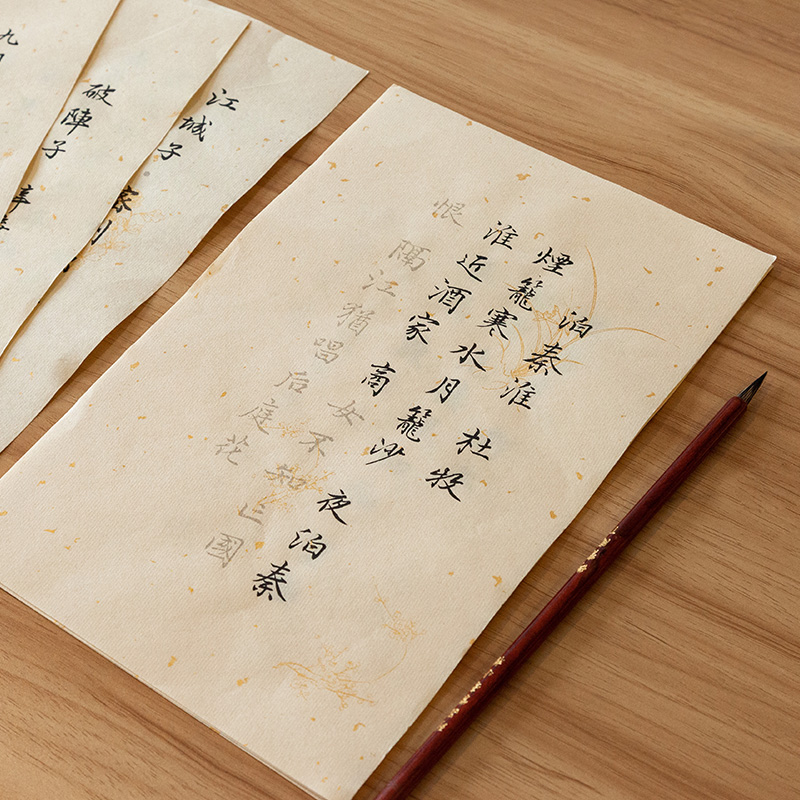 泊秦淮 杜牧
煙籠寒水月籠沙 夜泊秦
淮近酒家 商女不知亡國
恨 隔江猶唱后庭花
江城子
破陣子 辛
九月